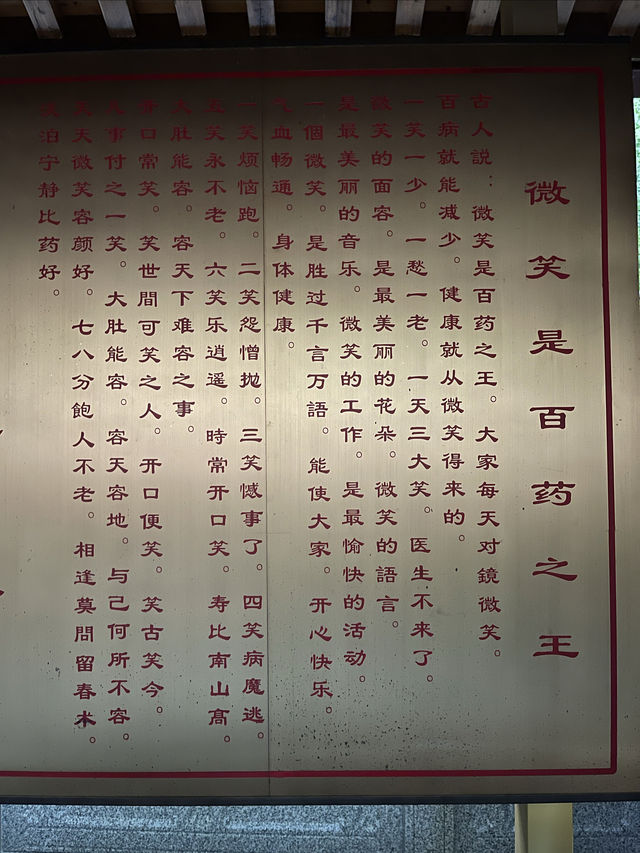 微笑是百药之王
古人説：微笑是百药之王。大家每天对鏡微笑。
百病就能减少。健康就从微笑得来的。
一笑一少。一愁一老。一天三大笑。医生不来了。
微笑的面容。是最美丽的花朵。微笑的語言。
是最美丽的音乐。微笑的工作。是最愉快的活动。
一個微笑。是胜过千言万語。能使大家。开心快乐。
气血畅通。身体健康。
一笑烦恼跑。二笑怨憎抛。三笑憾事了。四笑病魔逃。
五笑永不老。六笑乐逍遥。時常开口笑。寿比南山髙。
大肚能容。容天下难容之事。
开口常笑。笑世間可笑之人。开口便笑。笑古笑今。
凡事付之一笑。大肚能容。容天容地。与己何所不容。
天天微笑容颜好。七八分飽人不老。相逢莫問留春术。
淡泊宁静比药好。